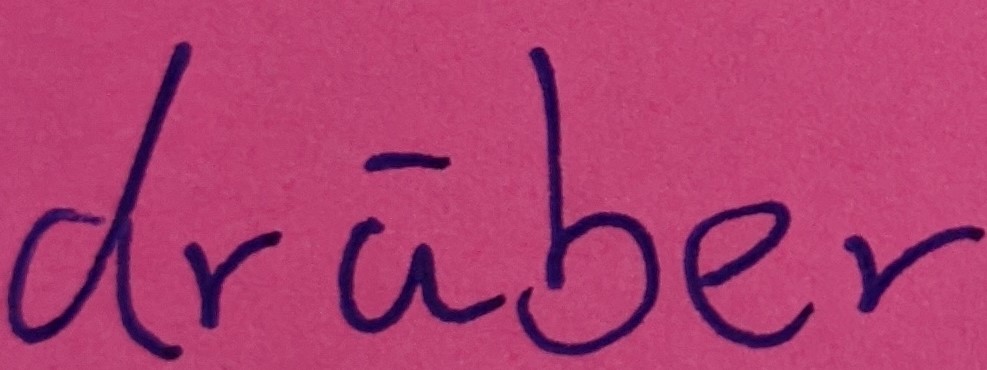 drāber